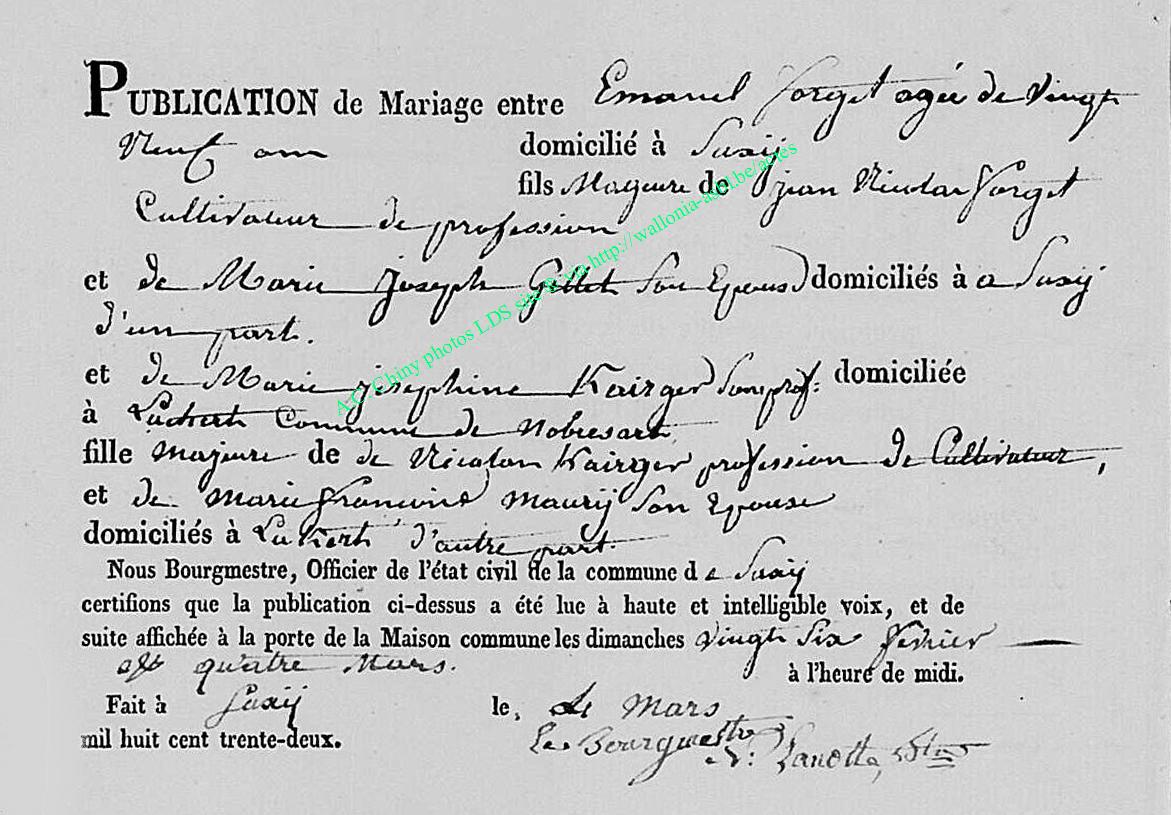 PUBLICATION de Mariage entre Emanuel Forget agée de Vingt
Neuf ans domicilié à Suxij
fils Mageure de jean Nicolas Forget
Cultivateur de profession
et de Marie Joseph Gillet Son Epouse domiciliés à a Suxij
d'un part.
et de Marie josephine Kairger Sans prof: domiciliée
à Commune de Nobresart
fille majeure de de Nicolas Kairger profession de Cultivateur,
et de marie francoise Maurij Son Epouse
domiciliés à d'autre part.
Nous Bourgmestre, Officier de l'état civil de la commune de Suxij
certifions que la publication ci-dessus a été lue à haute et intelligible voix, et de
suite affichée à la porte de la Maison commune les dimanches vingt Six fevrier
et quatre Mars. à l'heure de midi.
Fait à Suxij le, Mars
mil huit cent trente-deux.
Le Bourgmestre
A.G. Chiny photos LDS site & via http://wallonia-asbl.be/actes